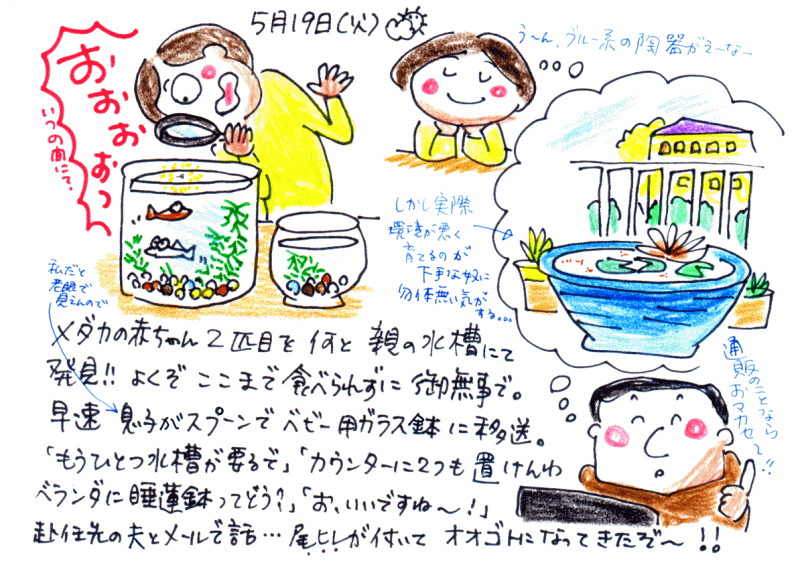 5月19日(火)
おぉぉぉっ
いつの間にて、
う〜ん、ブルー系の陶器がえーなー
しかし実際
環境が悪く
育てるのが
下手な奴に
勿体無い気が
する。。。
私だと
老眼で
見えんので
通販のことなら
おマカセ〜!!
メダカの赤ちゃん2匹目を何と親の水槽にて
発見!! よくぞここまで食べられずに御無事で。
早速息子がスプーンでベビー用ガラス鉢に移送。
「もうひとつ水槽が要るで」「カウンターに2つも置けんわ
ベランダに睡蓮鉢ってどう?」「お、いいですね〜!」
赴任先の夫とメールで話…尾ヒレが付いてオオゴトになってきたぞ〜!!